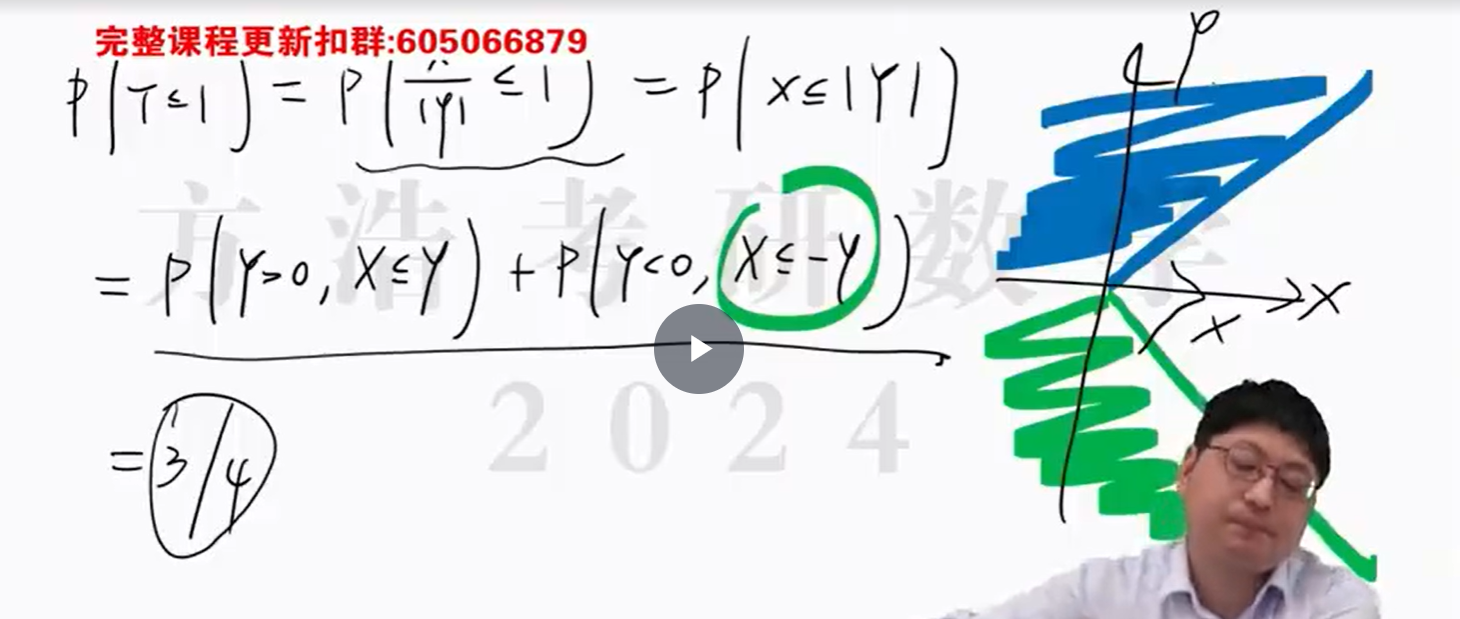 完整课程更新扣群:605066879
P(T≤1) = P(X/|Y| ≤ 1) = P(X≤|Y|)
= P(Y>0, X≤Y) + P(Y<0, X≤-Y)
= 3/4
Y
X
X
方浩考研数学
2024